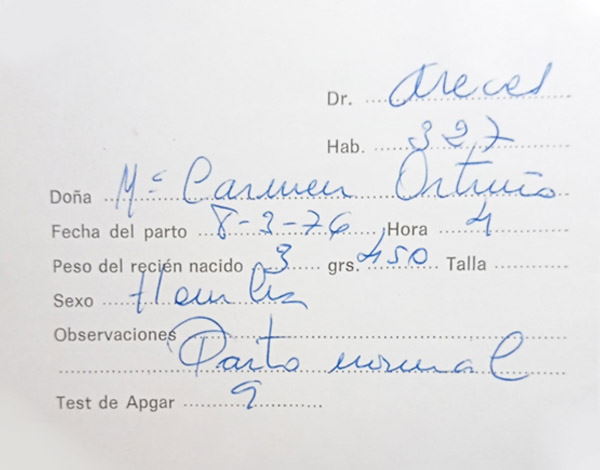 Dr. Areces
Hab. 327
Doña Mª Carmen Ortuño
Fecha del parto 8-3-76 Hora 4
Peso del recién nacido 3 grs. 450 Talla
Sexo Hombre
Observaciones
Parto normal
Test de Apgar 9